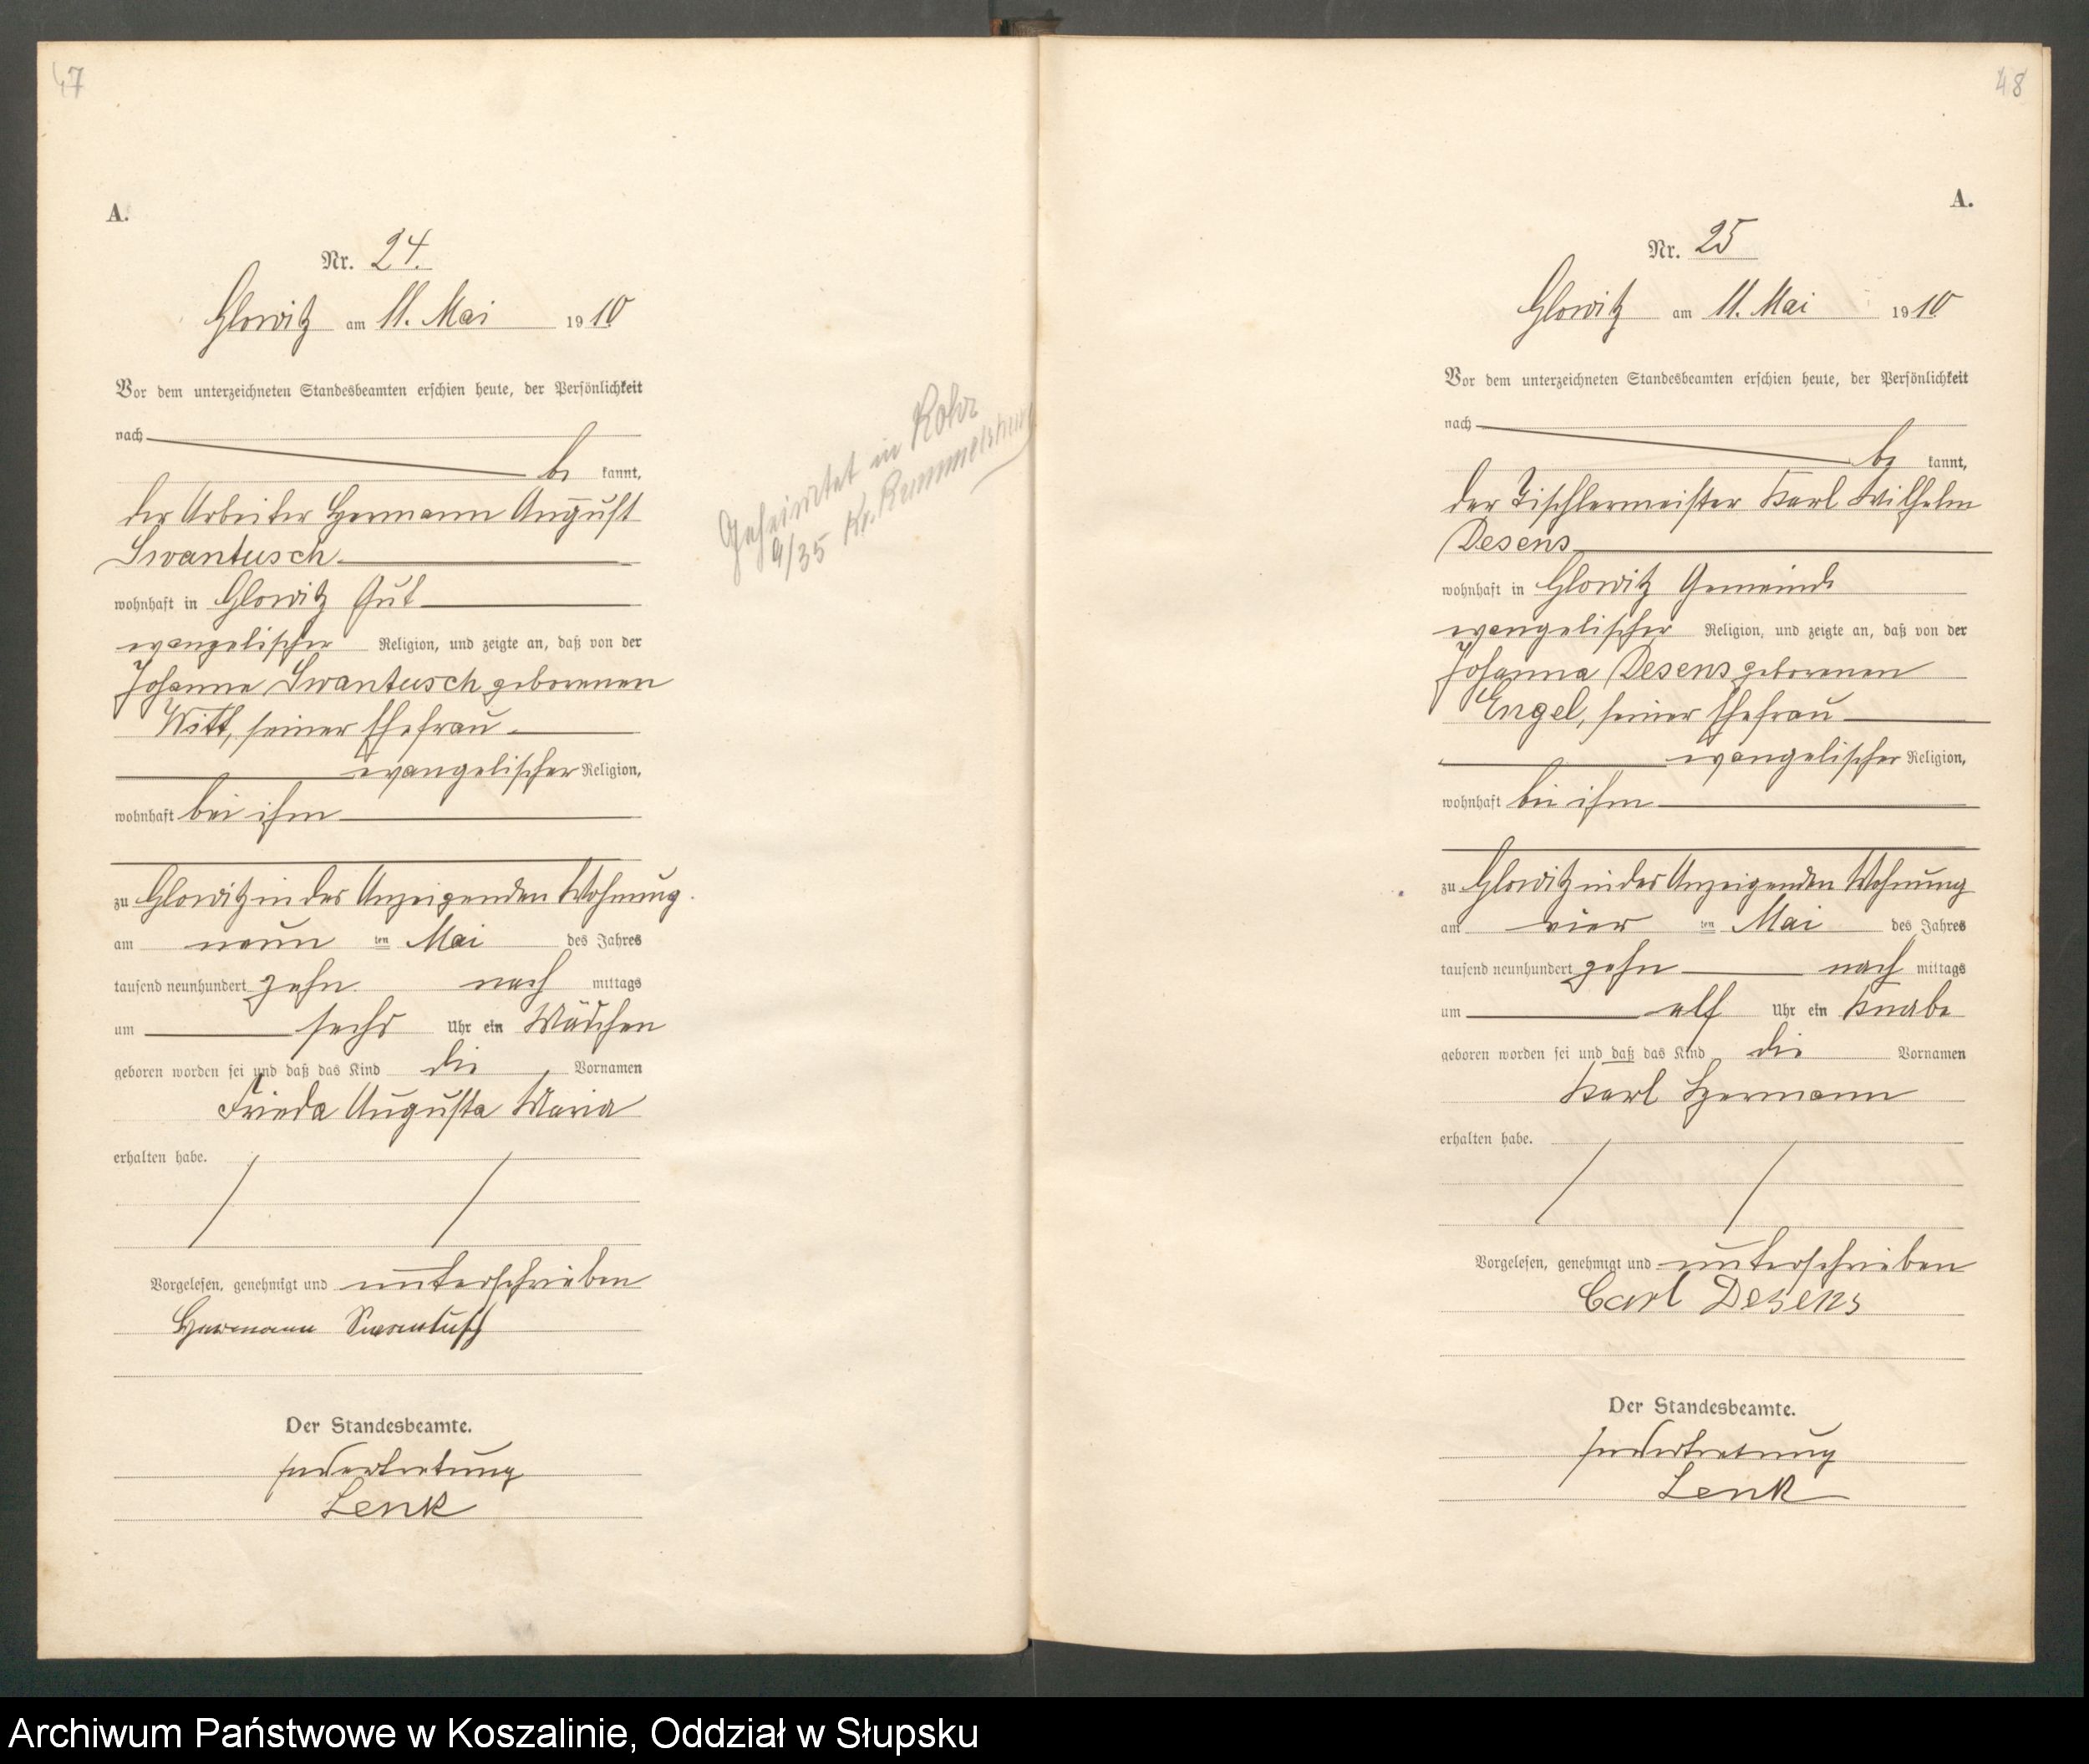 47
A.
Nr. 24.
Glowitz am 11. Mai 1910
Vor dem unterzeichneten Standesbeamten erschien heute, der Persönlichkeit
nach
be kannt,
der Arbeiter Hermann August
Swantusch
wohnhaft in Glowitz Gut
evangelischer Religion, und zeigte an, daß von der
Johanne Swantusch geborenen
Witt, seiner Ehefrau
evangelischer Religion,
wohnhaft bei ihm
zu Glowitz in des Anzeigenden Wohnung
am neun ten Mai des Jahres
tausend neunhundert zehn nach mittags
um sechs Uhr ein Mädchen
geboren worden sei und daß das Kind die Vornamen
Frieda Augusta Maria
erhalten habe.
Vorgelesen, genehmigt und unterschrieben
Hermann Swantusch
Der Standesbeamte.
In Vertretung
Lenk
Geheiratet in Rohr
9/35 Kr. Rummelsburg
48
A.
Nr. 25
Glowitz am 11. Mai 1910
Vor dem unterzeichneten Standesbeamten erschien heute, der Persönlichkeit
nach
be kannt,
der Tischlermeister Karl Wilhelm
Desens
wohnhaft in Glowitz Gemeinde
evangelischer Religion, und zeigte an, daß von der
Johanna Desens geborenen
Engel, seiner Ehefrau
evangelischer Religion,
wohnhaft bei ihm
zu Glowitz in des Anzeigenden Wohnung
am vier ten Mai des Jahres
tausend neunhundert zehn nach mittags
um elf Uhr ein Knabe
geboren worden sei und daß das Kind die Vornamen
Karl Hermann
erhalten habe.
Vorgelesen, genehmigt und unterschrieben
Carl Desens
Der Standesbeamte.
In Vertretung
Lenk
Archiwum Państwowe w Koszalinie, Oddział w Słupsku